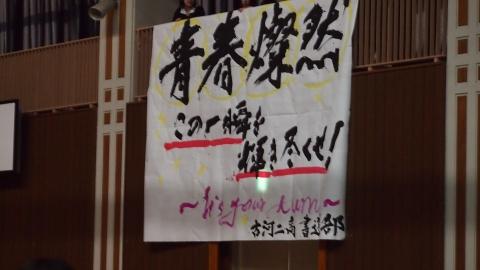 青春燦然
この一瞬を
輝き尽くせ!
～It's your turn～
古河二高書道部